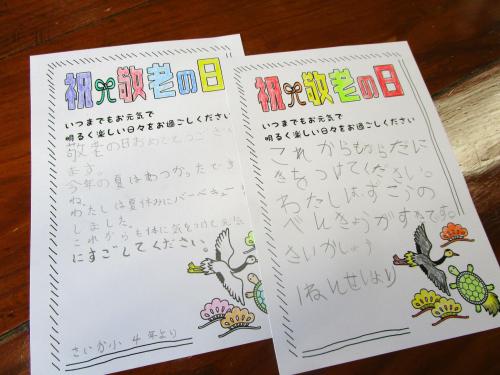 祝 敬老の日
いつまでもお元気で
明るく楽しい日々をお過ごしください
敬老の日おめでとうござい
ます。
今年の夏はあつかったです
ね。
わたしは夏休みにバーベキューを
しました。
これからも体に気をつけて元気
にすごしてください。
さいか小 4年より
祝 敬老の日
いつまでもお元気で
明るく楽しい日々をお過ごしください
これからもからだに
きをつけてください。
わたしはずこうの
べんきょうがすきです。
さいかしょう
1ねんせいより